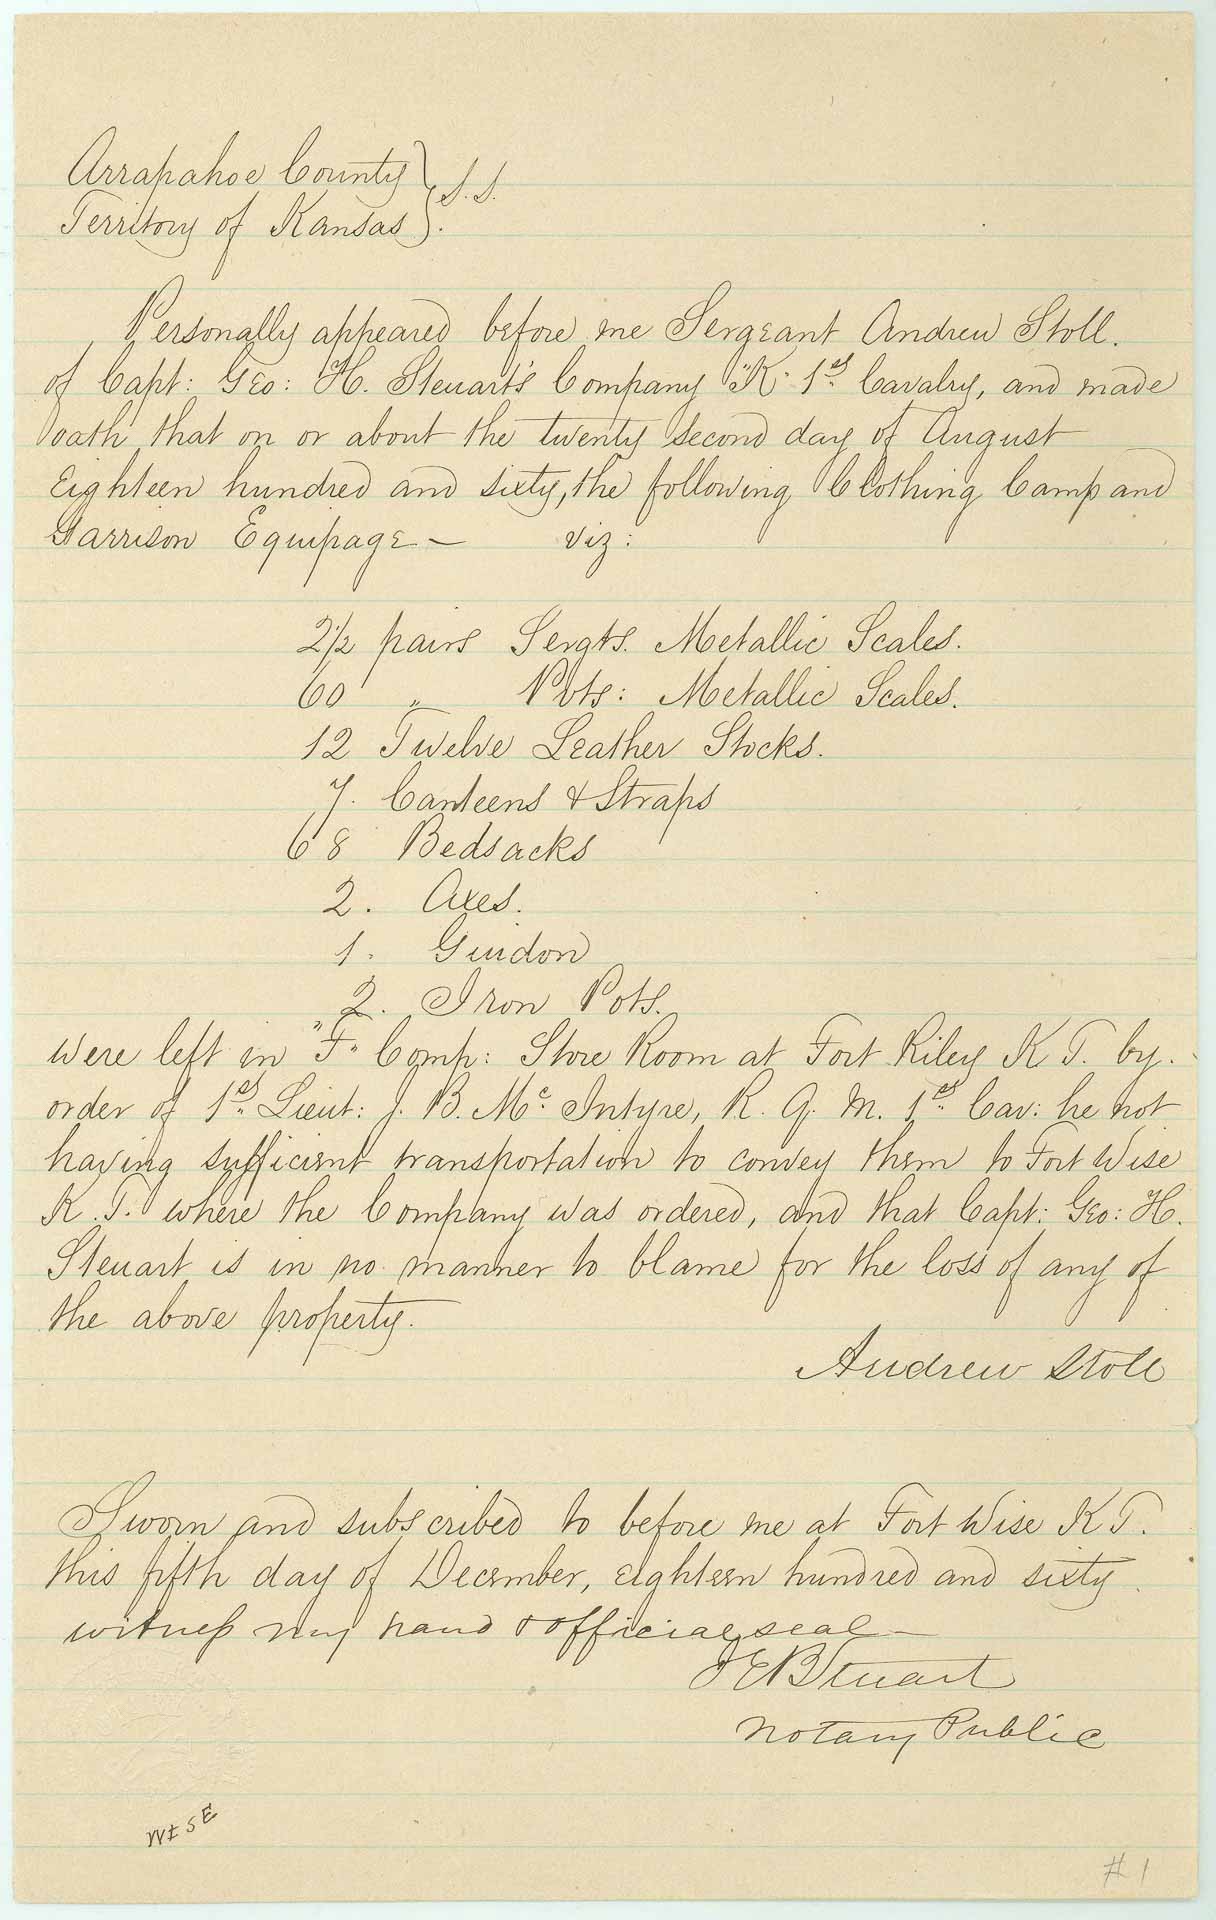 Arrapahoe County } S.S.
Territory of Kansas }
Personally appeared before me Sergeant Andrew Stoll.
of Capt: Geo: H. Steuart's Company "K" 1st Cavalry, and made
oath that on or about the twenty second day of August
Eighteen hundred and sixty, the following Clothing Camp and
Garrison Equipage — viz:
2 1/2 pairs Sergts. Metallic Scales.
60 " Pvts: Metallic Scales.
12 Twelve Leather Stocks.
7. Canteens & Straps
68 Bedsacks
2. Axes.
1. Guidon
2. Iron Pots.
were left in "F" Comp: Store Room at Fort Riley K T. by
order of 1st Lieut: J. B. Mc Intyre, R. Q. M. 1st Cav: he not
having sufficient transportation to convey them to Fort Wise
K. T. where the Company was ordered, and that Capt: Geo: H.
Steuart is in no manner to blame for the loss of any of
the above property.
Andrew Stoll
Sworn and subscribed to before me at Fort Wise K T.
this fifth day of December, eighteen hundred and sixty
witness my hand & official seal —
J E B Stuart
Notary Public
WISE
# 1